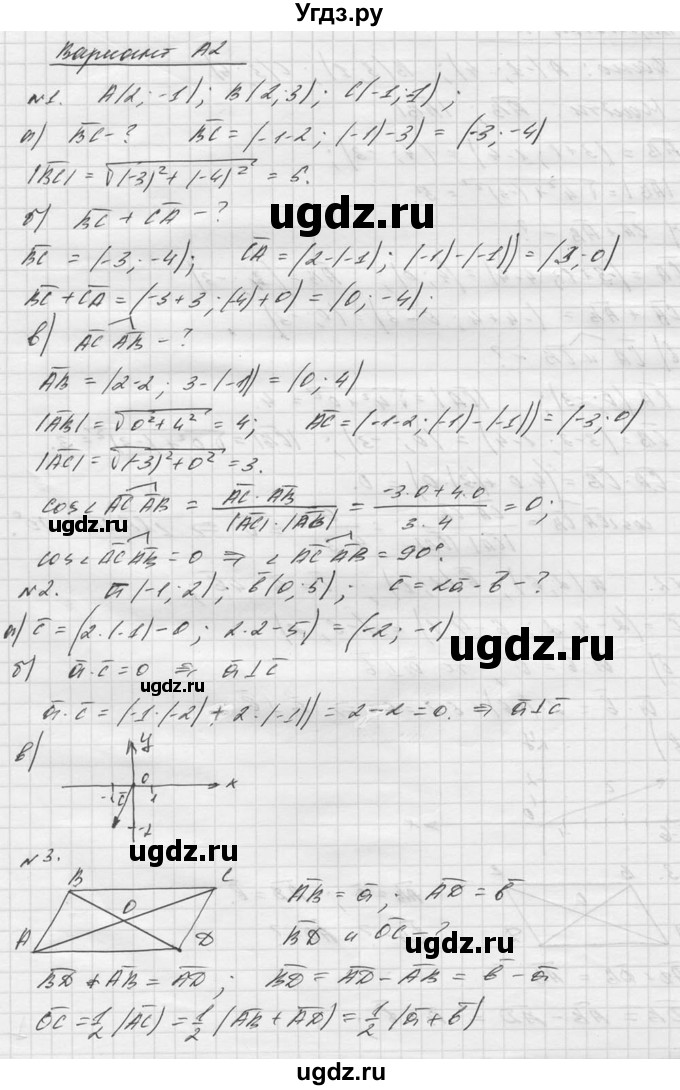 Угдз.ру
Вариант А2
№1. A(2; -1); B(2; 3); C(-1; -1);
а) BC - ? BC = (-1-2; (-1)-3) = (-3; -4)
|BC| = √(-3)² + (-4)² = 5.
ugdz.ru
б) BC + CA - ?
BC = (-3; -4); CA = (2-(-1); (-1)-(-1)) = (3; 0)
BC + CA = (-3+3; (-4)+0) = (0; -4);
в) AC AB - ?
AB = (2-2; 3-(-1)) = (0; 4)
|AB| = √0² + 4² = 4; AC = (-1-2; (-1)-(-1)) = (-3; 0)
ugdz.ru
|AC| = √(-3)² + 0² = 3.
cos∠AC AB = AC · AB / |AC| · |AB| = -3·0+4·0 / 3·4 = 0;
ugdz.ru
cos∠AC AB = 0 ⇒ ∠AC AB = 90°.
№2. a(-1; 2); b(0; 5); c = 2a - b - ?
а) c = (2·(-1)-0; 2·2-5) = (-2; -1)
ugdz.ru
б) a · c = 0 ⇒ a ⊥ c
ugdz.ru
a · c = (-1·(-2) + 2·(-1)) = 2-2 = 0. ⇒ a ⊥ c
в) y
0
-1 c 1 x
-2
ugdz.ru
№3.
B C
O
A D
AB = a; AD = b
BD и OC - ?
ugdz.ru
BD + AB = AD; BD = AD - AB = b - a
OC = 1/2 (AC) = 1/2 (AB + AD) = 1/2 (a + b)
ugdz.ru